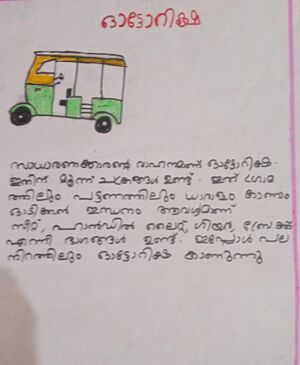 ഓട്ടോറിക്ഷ
സാധാരണക്കാരൻ്റെ വാഹനമാണ് ഓട്ടോറിക്ഷ.
ഇതിന് മൂന്ന് ചക്രങ്ങൾ ഉണ്ട്. ഇന്ന് ഗ്രാമ
ത്തിലും പട്ടണത്തിലും ധാരാളം കാണാം
ഓടിക്കാൻ ഇന്ധനം ആവശ്യമാണ്
സീറ്റ്, ഹാൻഡിൽ ലൈറ്റ്, ഗിയർ, ബ്രേക്ക്
എന്നീ ഭാഗങ്ങൾ ഉണ്ട്. ഇപ്പോൾ പല
നിറത്തിലും ഓട്ടോറിക്ഷ കാണുന്നു